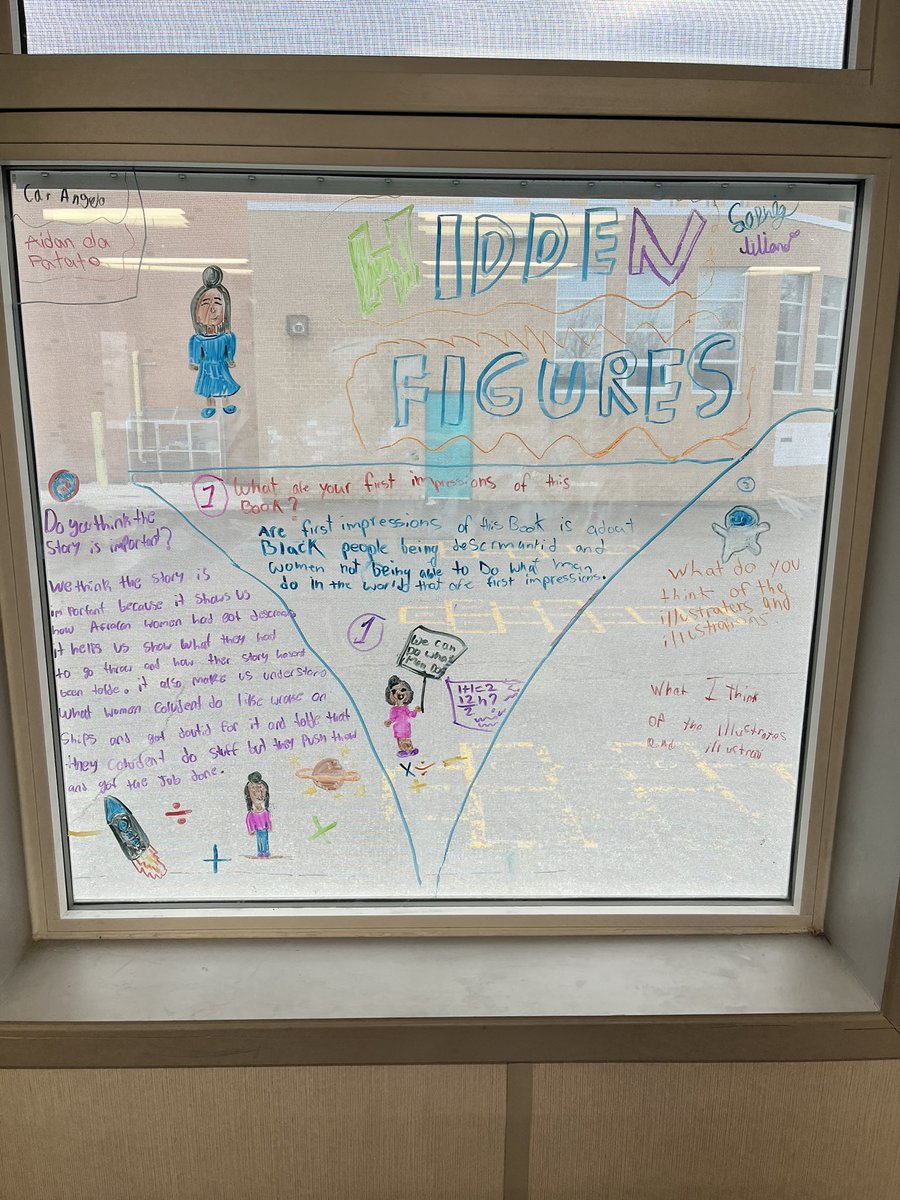 Car Angelo
Aidan da
Patato
HIDDEN
FIGURES
Lilliana
1 What are your first impressions of this
Book?
Are first impressions of this Book is about
Black people being descrmantid and
women not being able to Do what man
do In the world that are first impressions.
1
We can
Do what
Men Do!
1+1=2
12 h?
2
2
Do you think the
story is important?
We think the story is
important because it shows us
how African women had got
it hells us show what they had
to go throw and how ther story hasent
been tolde. it also makes us understand
what women coludent do like wroke on
ships and got doutid for it and tolde that
they coludent do stuff but they Push throw
and got the Job done.
3
What do you
think of the
illustraters and
illustrations.
What I think
of the illustrates
and illustrai